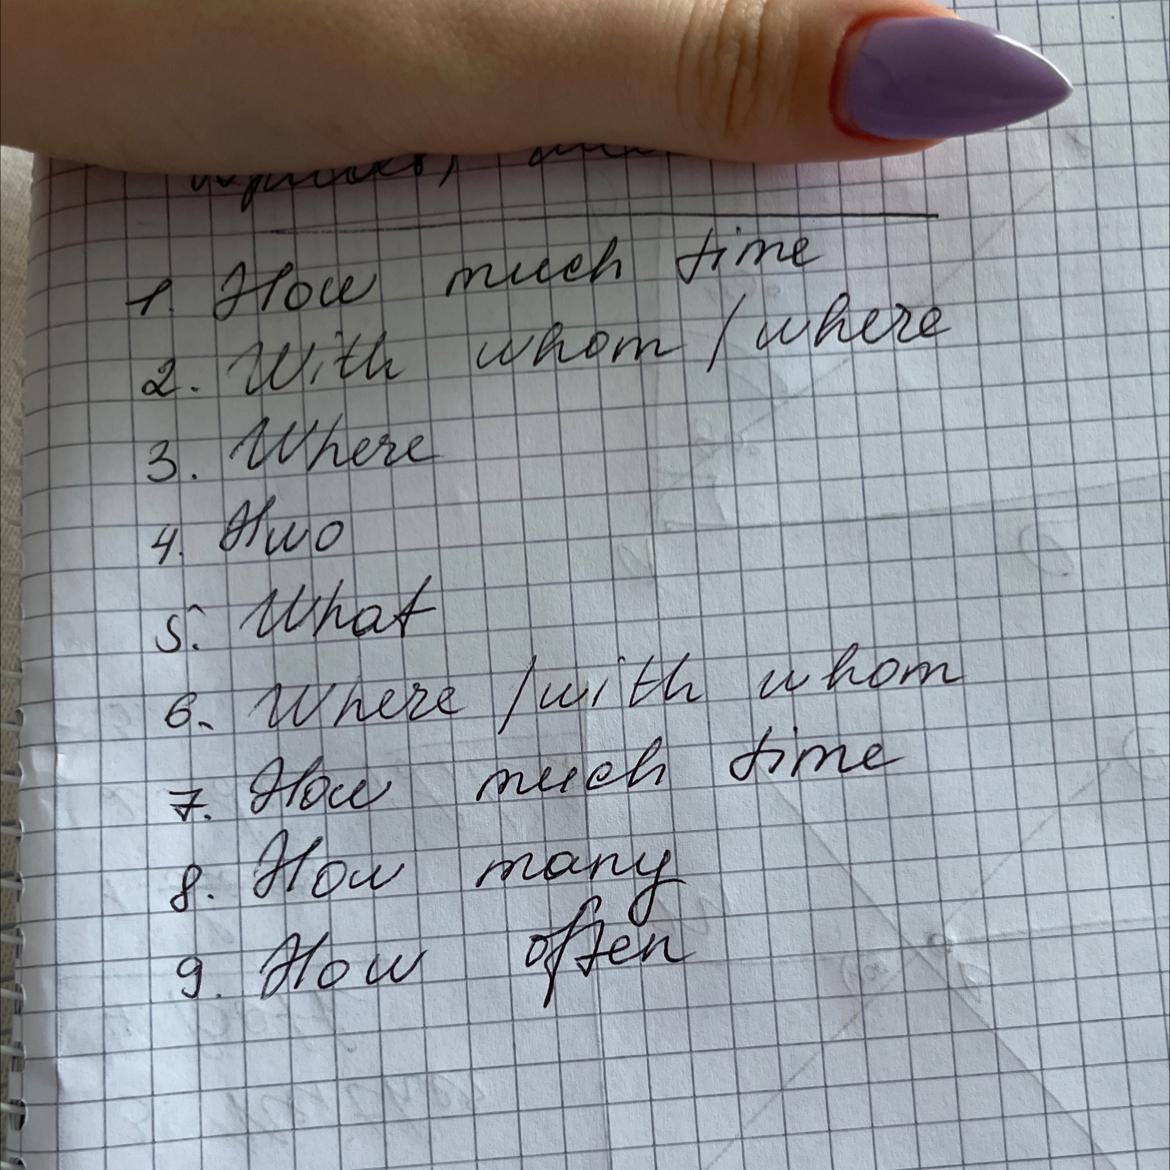 1. How much time
2. With whom / where
3. Where
4. Hwo
5. What
6. Where / with whom
7. How much time
8. How many
9. How often